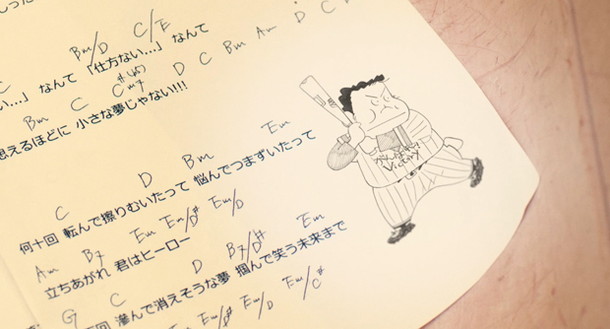 Bm/D C/E
い…」 なんて 「仕方ない…」 なんて
Bm C C#m7 D C Bm Am D C
思えるほどに 小さな夢じゃない!!!
C D Bm Em
何十回 転んで擦りむいたって 悩んでつまずいたって
Am B7 Em Em/D# Em/D
立ちあがれ 君はヒーロー
G C D B7/D# Em
回 滲んで消えそうな夢 掴んで笑う未来まで
Em/D# Em/D Em/C#
Victory